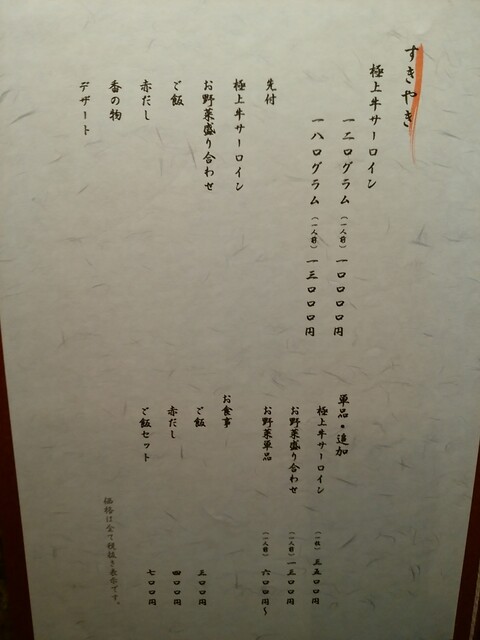 すきやき
極上牛サーロイン
一二〇グラム（一人前）一〇〇〇〇円
一八〇グラム（一人前）一三〇〇〇円
先付
極上牛サーロイン
お野菜盛り合わせ
ご飯
赤だし
香の物
デザート
単品・追加
極上牛サーロイン（一枚）三五〇〇円
お野菜盛り合わせ（一人前）一三〇〇円
お野菜単品（一人前）六〇〇円〜
お食事
ご飯 三〇〇円
赤だし 四〇〇円
ご飯セット 七〇〇円
価格は全て税抜き表示です。